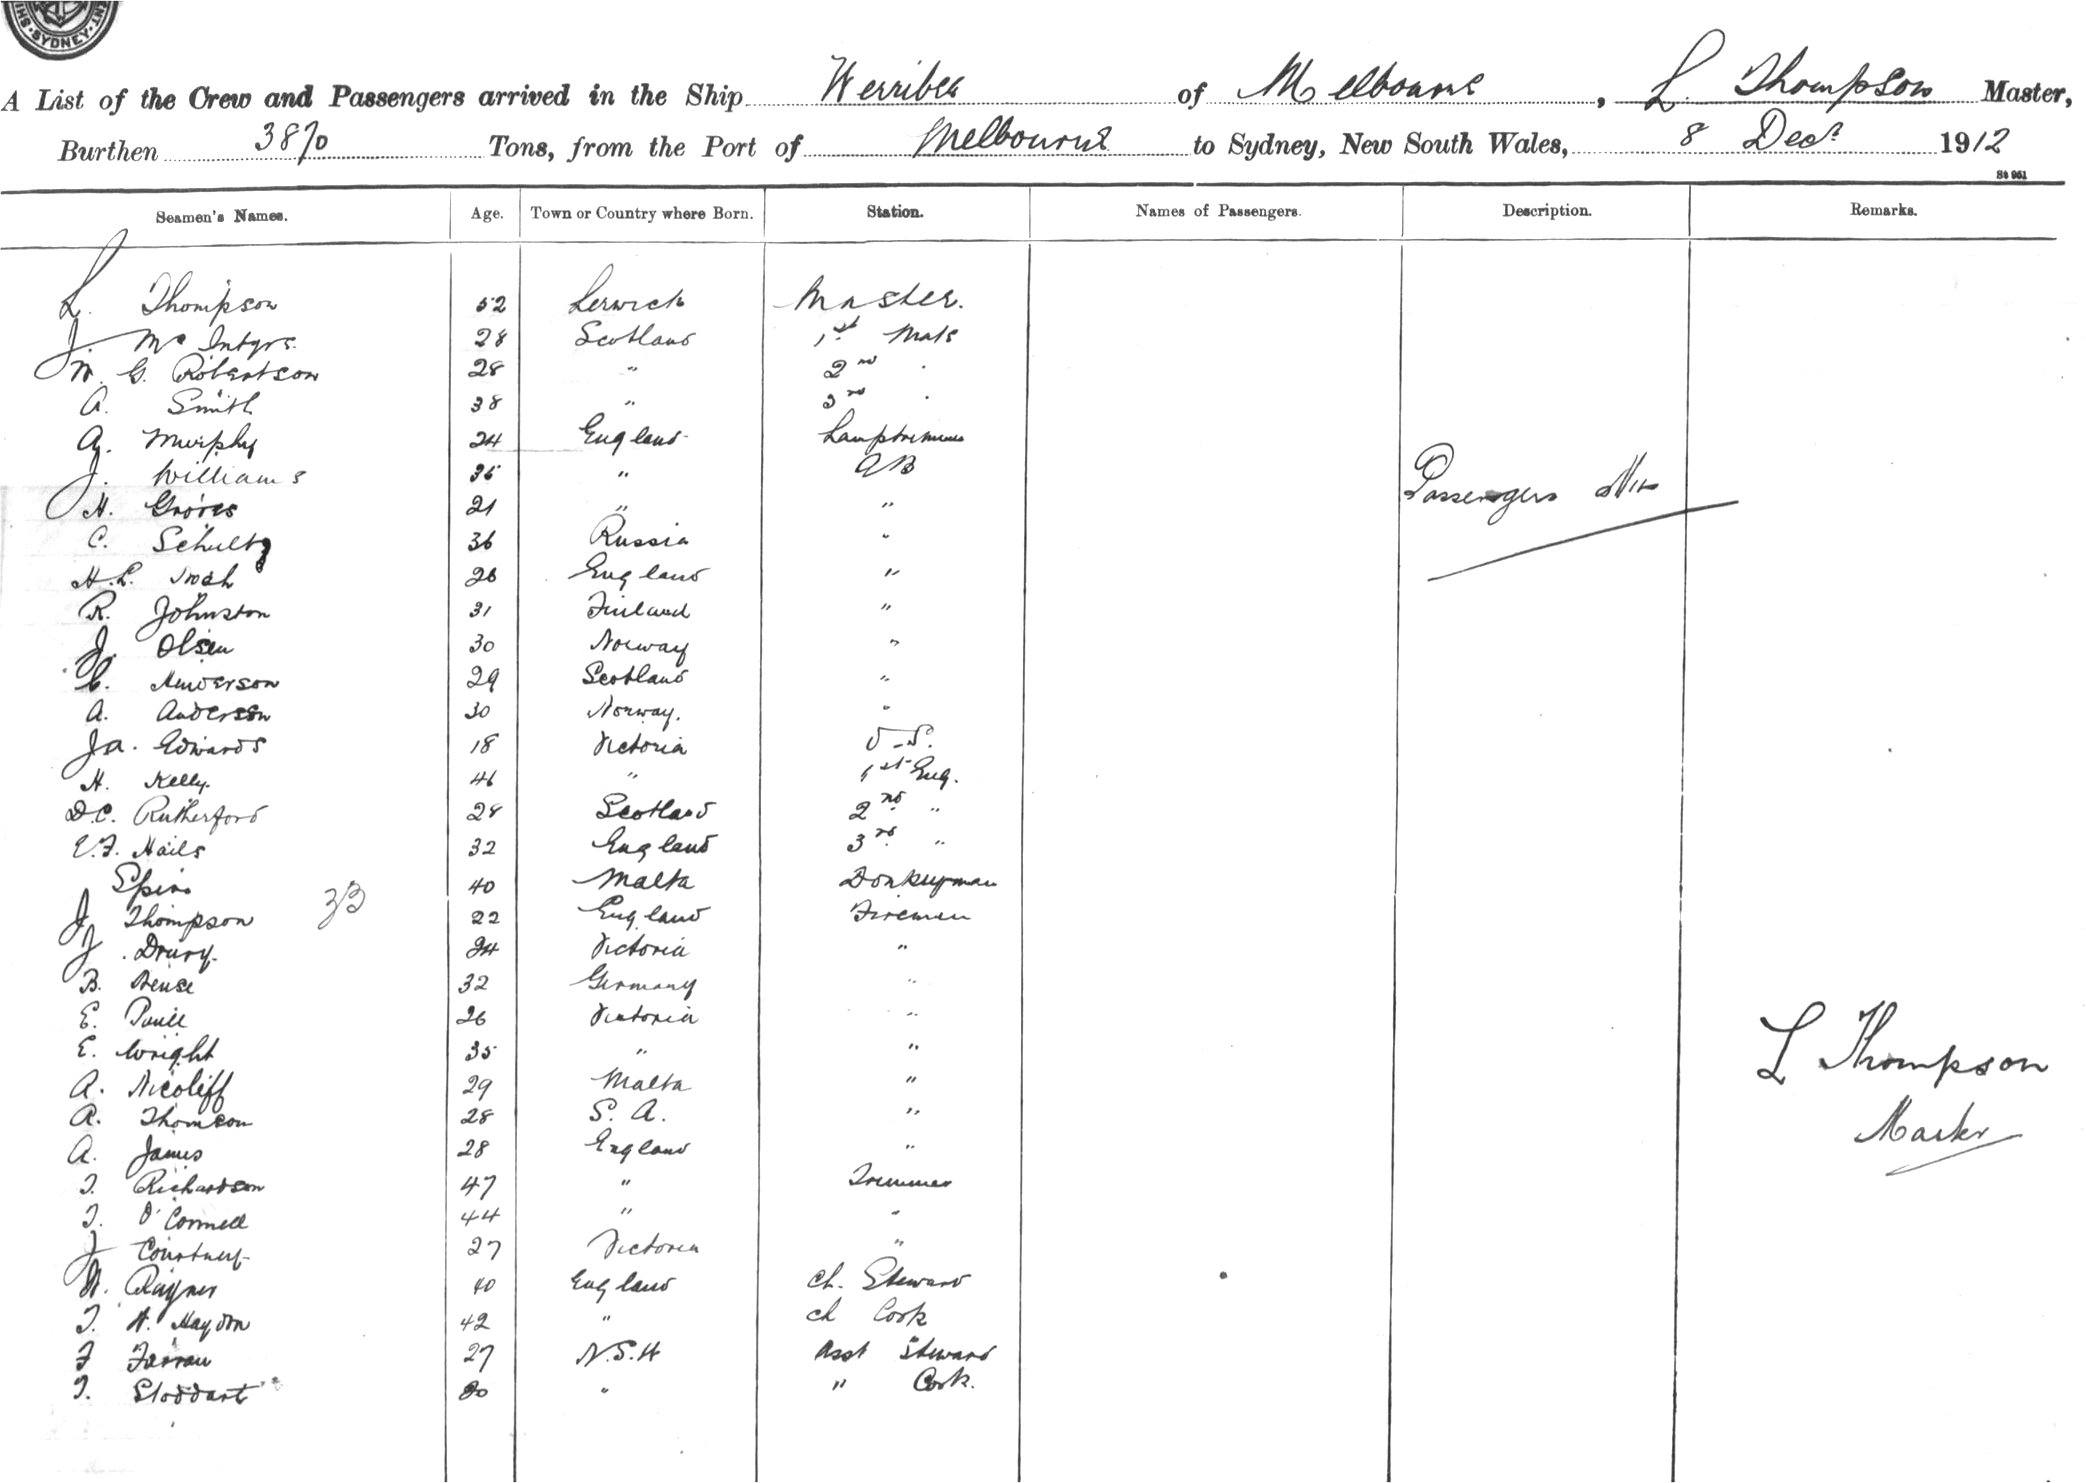 SYDNEY
A List of the Crew and Passengers arrived in the Ship Werribee of Melbourne, L. Thompson Master,
Burthen 3870 Tons, from the Port of Melbourne to Sydney, New South Wales, 8 Decr 1912
St 951
Seamen's Names. Age. Town or Country where Born. Station. Names of Passengers. Description. Remarks.
L. Thompson 52 Lerwick Master.
J. Mc Intyre 28 Scotland 1st Mate
W. G. Robertson 28 " 2nd
A. Smith 38 " 3rd
A. Murphy 24 England Lamptrimmer
J. Williams 35 " AB
H. Groves 21 " "
Passengers Nil
C. Schultz 36 Russia "
H.L. 26 England "
R. Johnston 31 Finland "
J. Olsen 30 Norway "
C. Henderson 29 Scotland "
A. Anderson 30 Norway. "
J.A. Edwards 18 Victoria O.S.
H. Kelly. 46 " 1st Eng.
D.C. Rutherford 28 Scotland 2nd "
E.F. Hails 32 England 3rd "
Spiro 40 Malta Donkeyman
33
J. Thompson 22 England Fireman
J. Drury. 24 Victoria "
B. 32 Germany "
E. 26 Victoria "
E. Wright 35 " "
L Thompson
A. Nicoliff 29 Malta "
A. Thomson 28 S. A. "
Master
A. James 28 England "
T. Richardson 47 " Trimmer
T. O'Connell 44 " "
J Courtney 27 Victoria "
W. Rayner 40 England Ch. Steward
T. H. Haydon 42 " Ch Cook
F Farrau 27 N.S.W Asst Steward
T. Stoddart " " Cook.